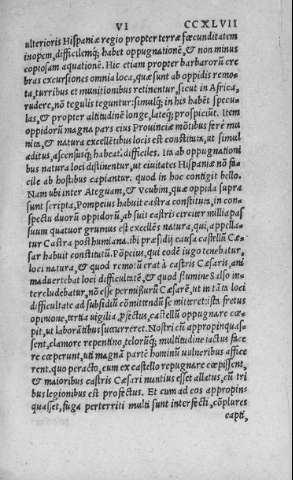 VI CCXLVII
ulterioris Hispaniæ regio propter terræ fœcunditatem
inopem, difficilemq; habet oppugnationẽ, & non minus
copiosam aquationẽ. Hic etiam propter barbarorũ cre
bras excursiones omnia loca, quæ sunt ab oppidis remo
ta, turribus et munitionibus retinentur, sicut in Africa,
rudere, nõ tegulis teguntur: simulq; in his habẽt specu
las, & propter altitudinẽ longe, lateq; prospiciũt. Item
oppidorũ magna pars eius Prouinciæ mõtibus fere mu
nita, & natura excellẽtibus locis est constituta, ut simul
æditus, ascensusq; habeat difficiles. ita ab oppugnationi
bus natura loci distinentur, ut ciuitates Hispaniæ nõ fa
cile ab hostibus capiantur. quod in hoc contigit bello.
Nam ubi inter Ateguam, & Vcubim, quæ oppida supra
sunt scripta, Pompeius habuit castra constituta, in con-
spectu duorũ oppidorũ, ab suis castris circiter millia pas
suum quatuor grumus est excellẽs natura, qui, appella-
tur Castra posthumiana. ibi præsidij causa castellũ Cæ-
sar habuit constitutũ. Põpeius, qui eodẽ iugo tenebatur,
loci natura, & quod remotũ erat à castris Cæsaris, ani
maduertebat loci difficultatẽ, & quod flumine Salso in-
tercludebatur, nõ esse permissurũ Cæsarẽ, ut in tãta loci
difficultate ad subsidiũ cõmittendũ se mitteret. ista fretus
opinione, tertia uigilia, profectus, castellũ oppugnare cœ-
pit, ut laborãtibus succurreret. Nostri cũ appropinquas-
sent, clamore repentino, telorũq; multitudine iactus face
re cœperunt, uti magnã partẽ hominũ uulneribus affice
rent. quo peracto, cum ex castello repugnare cœpissent,
& maioribus castris Cæsari nuntius esset allatus, cũ tri
bus legionibus est profectus. Et cum ad eos appropin-
quasset, fuga perterriti multi sunt interfecti, cõplures
capti,